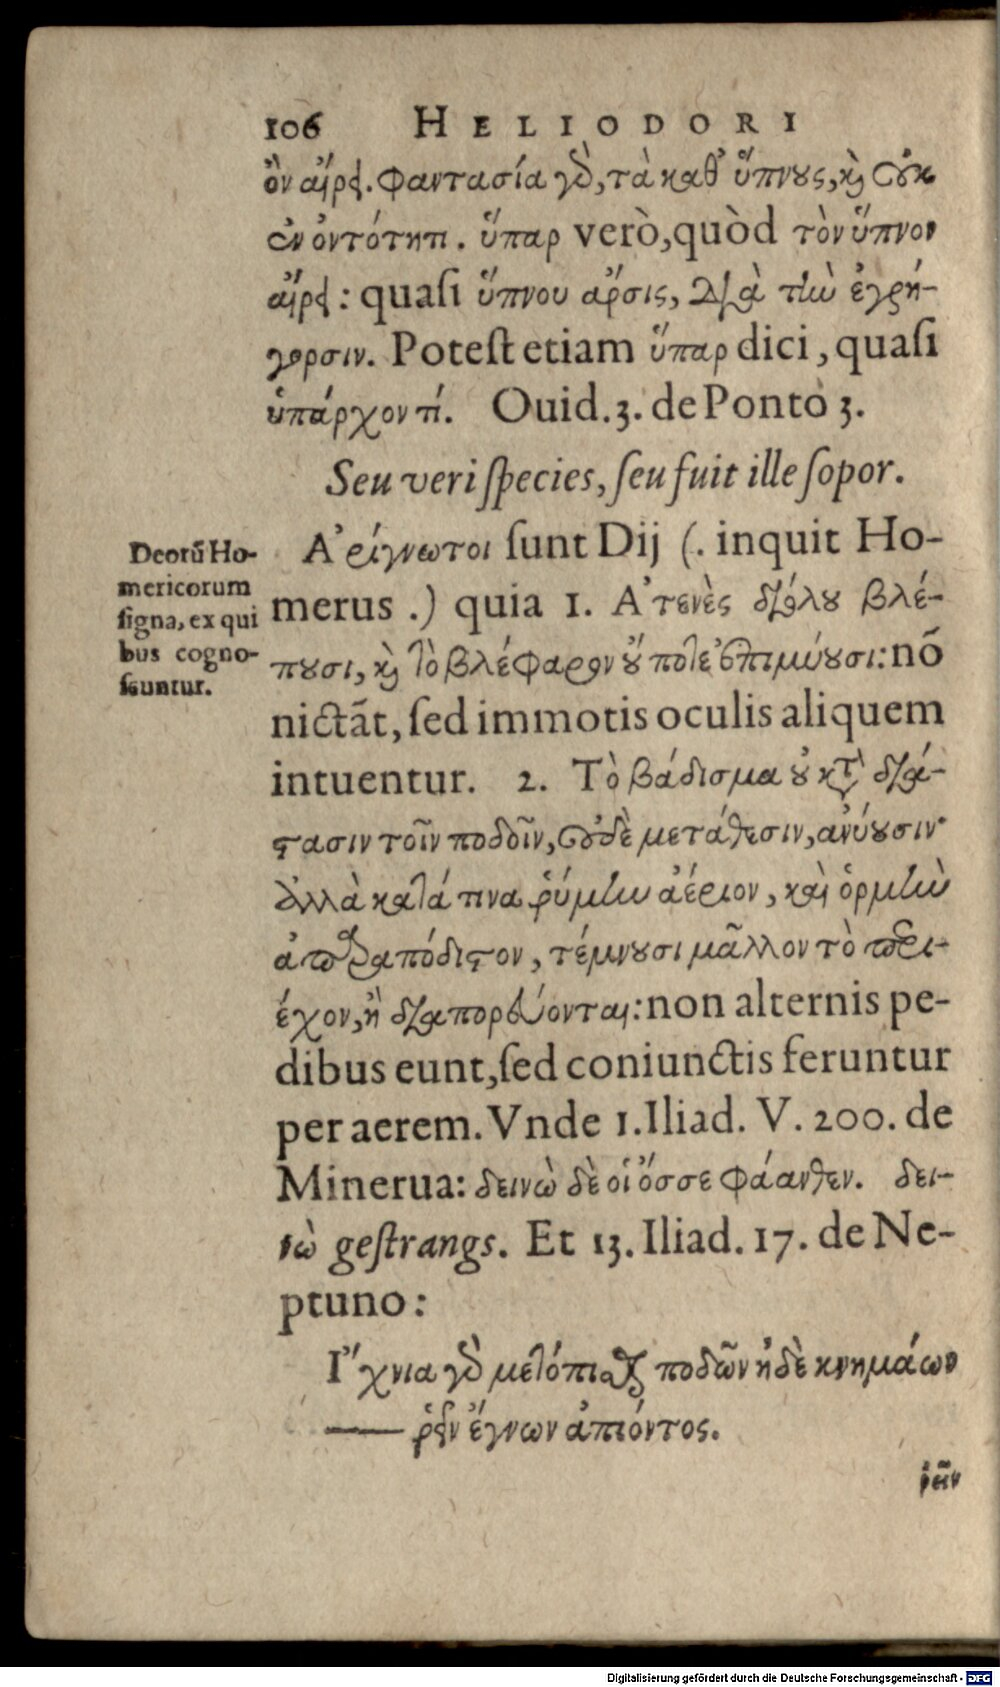 106 HELIODORI
ὂν αἴρει. Φαντασία γὸ, τὰ καθ' ὕπνους, καὶ οὐκ
ἐν ὀντότητι. ὕπαρ verò, quòd τὸν ὕπνον
αἴρει: quasi ὕπνου ἄρσις, διὰ τὴν ἐγρή-
γορσιν. Potest etiam ὕπαρ dici, quasi
ὑπάρχον τί. Ouid. 3. de Ponto 3.
Seu veri species, seu fuit ille sopor.
Deorū Ho-
mericorum
signa, ex qui
bus cogno-
scuntur.
Ἀρίγνωτοι sunt Dij (. inquit Ho-
merus .) quia 1. Ἀτενὲς διόλου βλέ-
πουσι, καὶ τὸ βλέφαρον οὔποτε ἐπιμύουσι: nō
nictāt, sed immotis oculis aliquem
intuentur. 2. Τὸ βάδισμα οὐ κτ̀ διά-
στασιν τοῖν ποδοῖν, οὐδὲ μετάθεσιν, ἀνύουσιν·
ἀλλὰ κατά τινα ῥύμην ἀέριον, καὶ ὁρμὴν
ἀπαραπόδιστον, τέμνουσι μᾶλλον τὸ περι-
έχον, ἢ διαπορεύονται: non alternis pe-
dibus eunt, sed coniunctis feruntur
per aerem. Vnde 1. Iliad. V. 200. de
Minerua: δεινὼ δὲ οἱ ὄσσε φάανθεν. δει-
νὼ gestrangs. Et 13. Iliad. 17. de Ne-
ptuno:
Ἴχνια γὸ μετόπισθε ποδῶν ἠδὲ κνημάων
—— ῥεῖν ἔγνων ἀπιόντος.
ῥεῖν
Digitalisierung gefördert durch die Deutsche Forschungsgemeinschaft - DFG